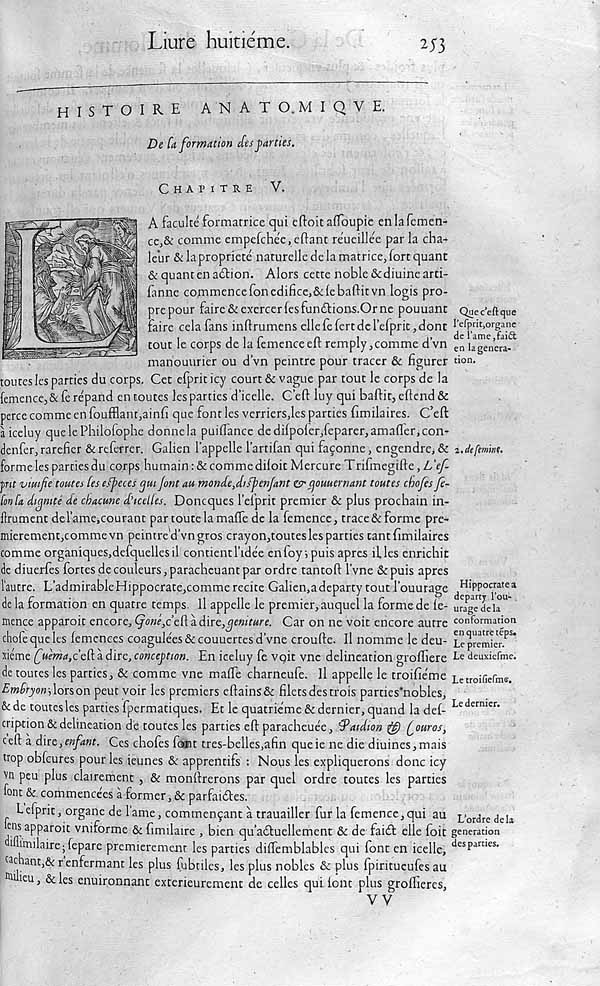 Liure huitiéme. 253
HISTOIRE ANATOMIQVE.
De la formation des parties.
CHAPITRE V.
LA faculté formatrice qui eſtoit aſſoupie en la ſemen-
ce, & comme empeſchée, eſtant réueillée par la cha-
leur & la proprieté naturelle de la matrice, ſort quant
& quant en action. Alors cette noble & diuine arti-
ſanne commence ſon edifice, & ſe baſtit vn logis pro-
pre pour faire & exercer ſes functions. Or ne pouuant
faire cela ſans inſtrumens elle ſe ſert de l'eſprit, dont
tout le corps de la ſemence eſt remply, comme d'vn
manouurier ou d'vn peintre pour tracer & figurer
toutes les parties du corps. Cet eſprit icy court & vague par tout le corps de la
ſemence, & ſe répand en toutes les parties d'icelle. C'eſt luy qui baſtit, eſtend &
perce comme en ſoufflant, ainſi que font les verriers, les parties ſimilaires. C'eſt
à iceluy que le Philoſophe donne la puiſſance de diſpoſer, ſeparer, amaſſer, con-
denſer, rarefier & reſerrer. Galien l'appelle l'artiſan qui façonne, engendre, &
forme les parties du corps humain: & comme diſoit Mercure Triſmegiſte, L'eſ-
prit viuifie toutes les eſpeces qui ſont au monde, diſpenſant & gouuernant toutes choſes ſe-
lon la dignité de chacune d'icelles. Doncques l'eſprit premier & plus prochain in-
ſtrument de l'ame, courant par toute la maſſe de la ſemence, trace & forme pre-
mierement, comme vn peintre d'vn gros crayon, toutes les parties tant ſimilaires
comme organiques, deſquelles il contient l'idée en ſoy; puis apres il les enrichit
de diuerſes ſortes de couleurs, paracheuant par ordre tantoſt l'vne & puis apres
l'autre. L'admirable Hippocrate, comme recite Galien, a departy tout l'ouurage
de la formation en quatre temps. Il appelle le premier, auquel la forme de ſe-
mence apparoit encore, Goné, c'eſt à dire, geniture. Car on ne voit encore autre
choſe que les ſemences coagulées & couuertes d'vne crouſte. Il nomme le deu-
xiéme Cuèma, c'eſt à dire, conception. En iceluy ſe voit vne delineation groſſiere
de toutes les parties, & comme vne maſſe charneuſe. Il appelle le troiſiéme
Embryon; lors on peut voir les premiers eſtains & filets des trois parties nobles,
& de toutes les parties ſpermatiques. Et le quatriéme & dernier, quand la deſ-
cription & delineation de toutes les parties eſt paracheuée, Paidion & Couros,
c'eſt à dire, enfant. Ces choſes ſont tres-belles, afin que ie ne die diuines, mais
trop obſcures pour les ieunes & apprentifs: Nous les expliquerons donc icy
vn peu plus clairement, & monſtrerons par quel ordre toutes les parties
ſont & commencées à former, & parfaictes.
L'eſprit, organe de l'ame, commençant à trauailler ſur la ſemence, qui au
ſens apparoit vniforme & ſimilaire, bien qu'actuellement & de faict elle ſoit
diſſimilaire; ſepare premierement les parties diſſemblables qui ſont en icelle,
cachant, & r'enfermant les plus ſubtiles, les plus nobles & plus ſpiritueuſes au
milieu, & les enuironnant exterieurement de celles qui ſont plus groſſieres,
VV
Que c'eſt que
l'eſprit, organe
de l'ame, faict
en la genera-
tion.
2. de ſemine.
Hippocrate a
departy l'ou-
urage de la
conformation
en quatre tẽps.
Le premier.
Le deuxieſme.
Le troiſieſme.
Le dernier.
L'ordre de la
generation
des parties.